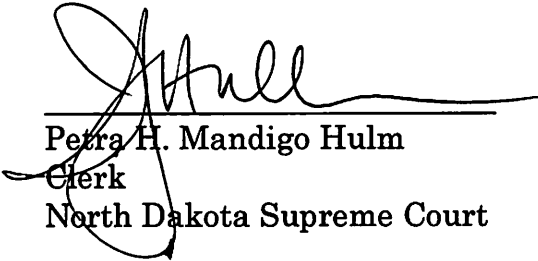 Petra H. Mandigo Hulm
Clerk
North Dakota Supreme Court